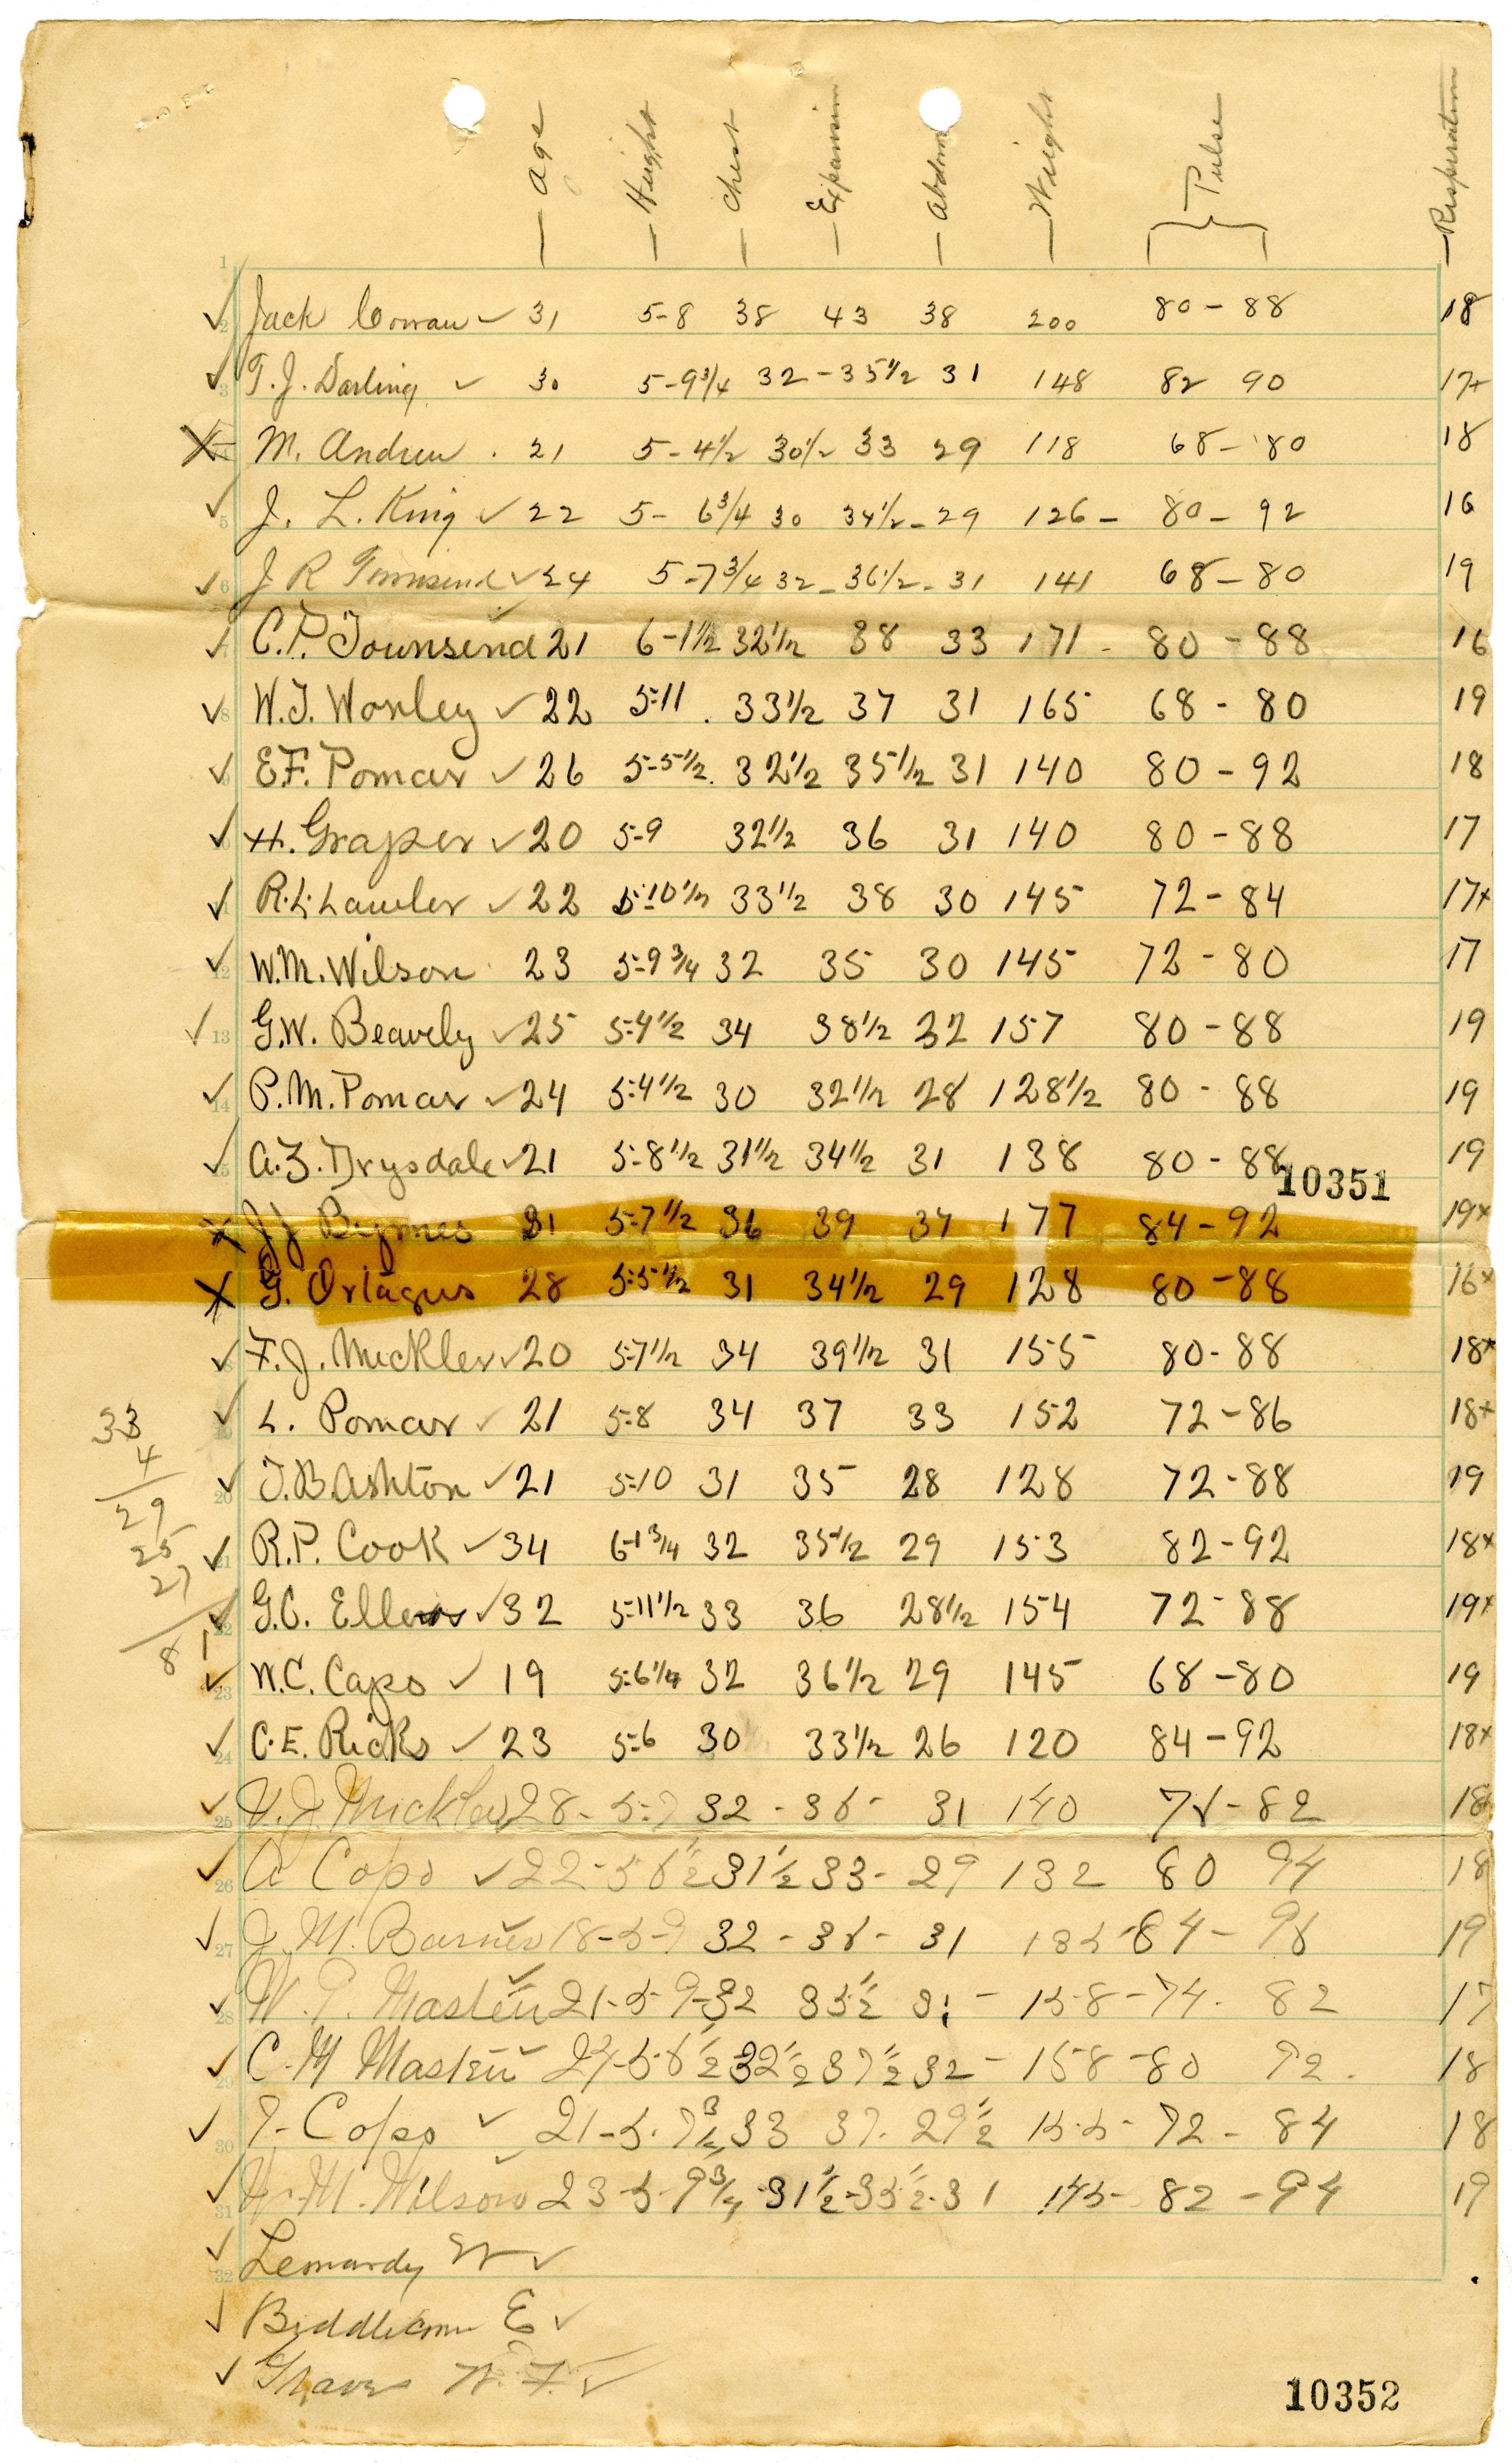 Age Height Chest Expansion Abdom Weight Pulse Respiration
1
✓ 2 Jack Cowan ✓ 31 5-8 38 43 38 200 80-88 18
✓ 3 T. J. Darling ✓ 30 5-9 3/4 32-35 1/2 31 148 82 90 17+
X M. Andreu. 21 5-4 1/2 30 1/2 33 29 118 68-80 18
✓ 5 J. L. King ✓ 22 5-6 3/4 30 34 1/2-29 126- 80-92 16
✓ 6 J R Townsend ✓ 24 5-7 3/4 32-36 1/2-31 141 68-80 19
✓ 7 C. P. Townsend 21 6-1 1/2 32 1/2 38 33 171- 80-88 16
✓ 8 W. J. Worley ✓ 22 5-11. 33 1/2 37 31 165 68-80 19
✓ E. F. Pomar ✓ 26 5-5 1/2. 32 1/2 35 1/2 31 140 80-92 18
✓ H. Graper ✓ 20 5-9 32 1/2 36 31 140 80-88 17
✓ R. L. Lawler ✓ 22 5-10 1/2 33 1/2 38 30 145 72-84 17+
✓ 12 W. M. Wilson 23 5-9 3/4 32 35 30 145 72-80 17
✓ 13 G. W. Beavely ✓ 25 5-4 1/2 34 38 1/2 32 157 80-88 19
✓ 14 P. M. Pomar ✓ 24 5-4 1/2 30 32 1/2 28 128 1/2 80-88 19
✓ 15 A. Z. Drysdale ✓ 21 5-8 1/2 31 1/2 34 1/2 31 138 80-88 19
10351
X J J Byrnes 31 5-7 1/2 36 39 37 177 84-92 19+
X G. Ortagus 28 5-5 1/2 31 34 1/2 29 128 80-88 16+
✓ F. J. Mickler ✓ 20 5-7 1/2 34 39 1/2 31 155 80-88 18+
✓ L. Pomar ✓ 21 5-8 34 37 33 152 72-86 18+
33
4
29
25
27
81
✓ 20 J. B. Ashton ✓ 21 5-10 31 35 28 128 72-88 19
✓ 21 R. P. Cook ✓ 34 6-1 3/4 32 35 1/2 29 153 82-92 18+
✓ 22 G. C. Ellers ✓ 32 5-11 1/2 33 36 28 1/2 154 72-88 19+
✓ 23 W. C. Capo ✓ 19 5-6 1/4 32 36 1/2 29 145 68-80 19
✓ 24 C. E. Ricks ✓ 23 5-6 30 33 1/2 26 120 84-92 18+
✓ 25 Mickler 28-5-7 32-36- 31 140 76-82 18
✓ 26 A Capo ✓ 22-5 6 1/2 31 1/2 33-29 132 80 94 18
✓ 27 J. M. Barnes ✓ 18-5-9 32-36-31 135-84-96 19
✓ 28 W. P. Masters ✓ 21-5-9-32 35 1/2 31- 158-74-82 17
✓ 29 C. M Masters ✓ 5-6 1/2 32 1/2 37 1/2 32-158-80 92. 18
✓ 30 T. Capo ✓ 21-5-7 3/4 33 37-29 1/2 155-72-84 18
✓ 31 W. M. Wilson 23-5-9 3/4-31 1/2-35 1/2-31 145-82-94 19
✓ 32 Lemardy W ✓
✓ Biddlecom E ✓
✓ Graves W. F. ✓
10352